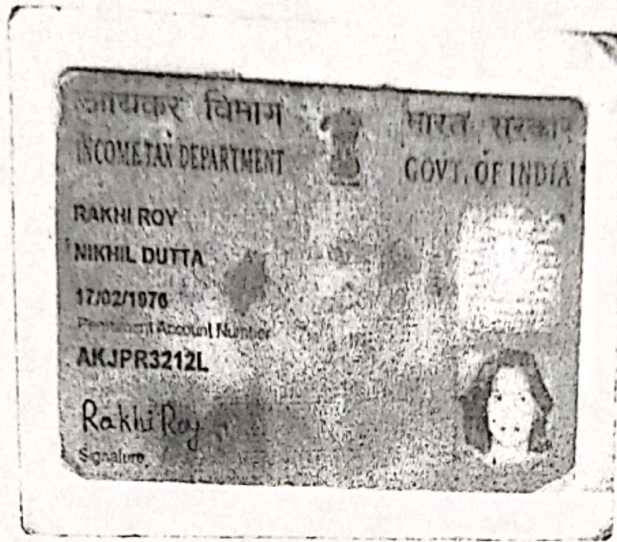 आयकर विभाग
INCOME TAX DEPARTMENT
भारत सरकार
GOVT. OF INDIA
RAKHI ROY
NIKHIL DUTTA
17/02/1976
Permanent Account Number
AKJPR3212L
Rakhi Roy
Signature